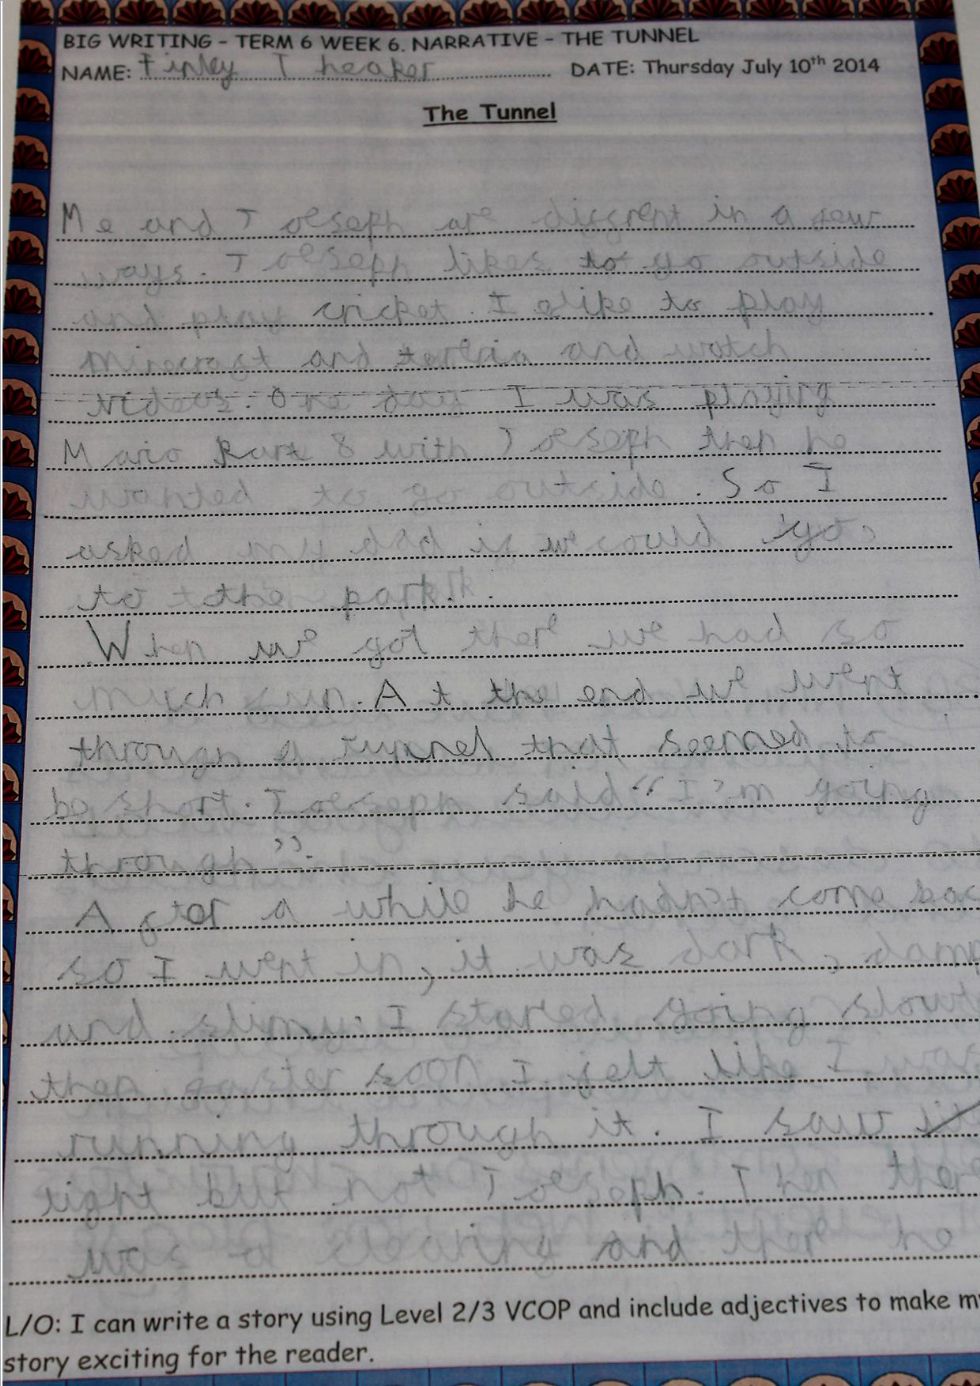 BIG WRITING - TERM 6 WEEK 6. NARRATIVE - THE TUNNEL
NAME: Finley Theaker DATE: Thursday July 10th 2014
The Tunnel
Me and Joeseph are diffrent in a few
ways. Joeseph likes to go outside
and play cricket. I like to play
Minecraft and and watch
videos. One day I was playing
Mario Kart 8 with Joeseph then he
wanted to go outside. So I
asked my dad if we could go
to the park.
When we got there we had so
much fun. At the end we went
through a tunnel that seemed to
be short. Joeseph said "I'm going
through".
After a while he hadnt come bac
so I went in, it was dark, damp
and slimy. I started going slow
then faster soon I felt like I was
running through it. I saw
light but not Joeseph. Then ther
was a clearing and ther he
L/O: I can write a story using Level 2/3 VCOP and include adjectives to make my
story exciting for the reader.